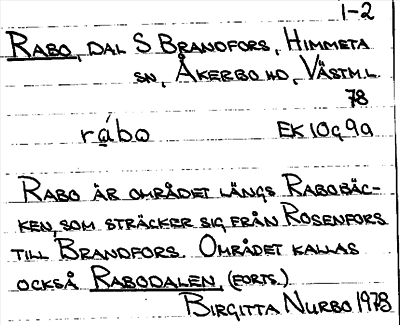 1-2
RABO, DAL S BRANDFORS, HIMMETA
SN, ÅKERBO HD, VÄSTML.
78
rábo EK 10g 9a
RABO ÄR OMRÅDET LÄNGS RABOBÄC-
KEN, SOM STRÄCKER SIG FRÅN ROSENFORS
TILL BRANDFORS. OMRÅDET KALLAS
OCKSÅ RABODALEN. (FORTS.)
BIRGITTA NURBO 1978